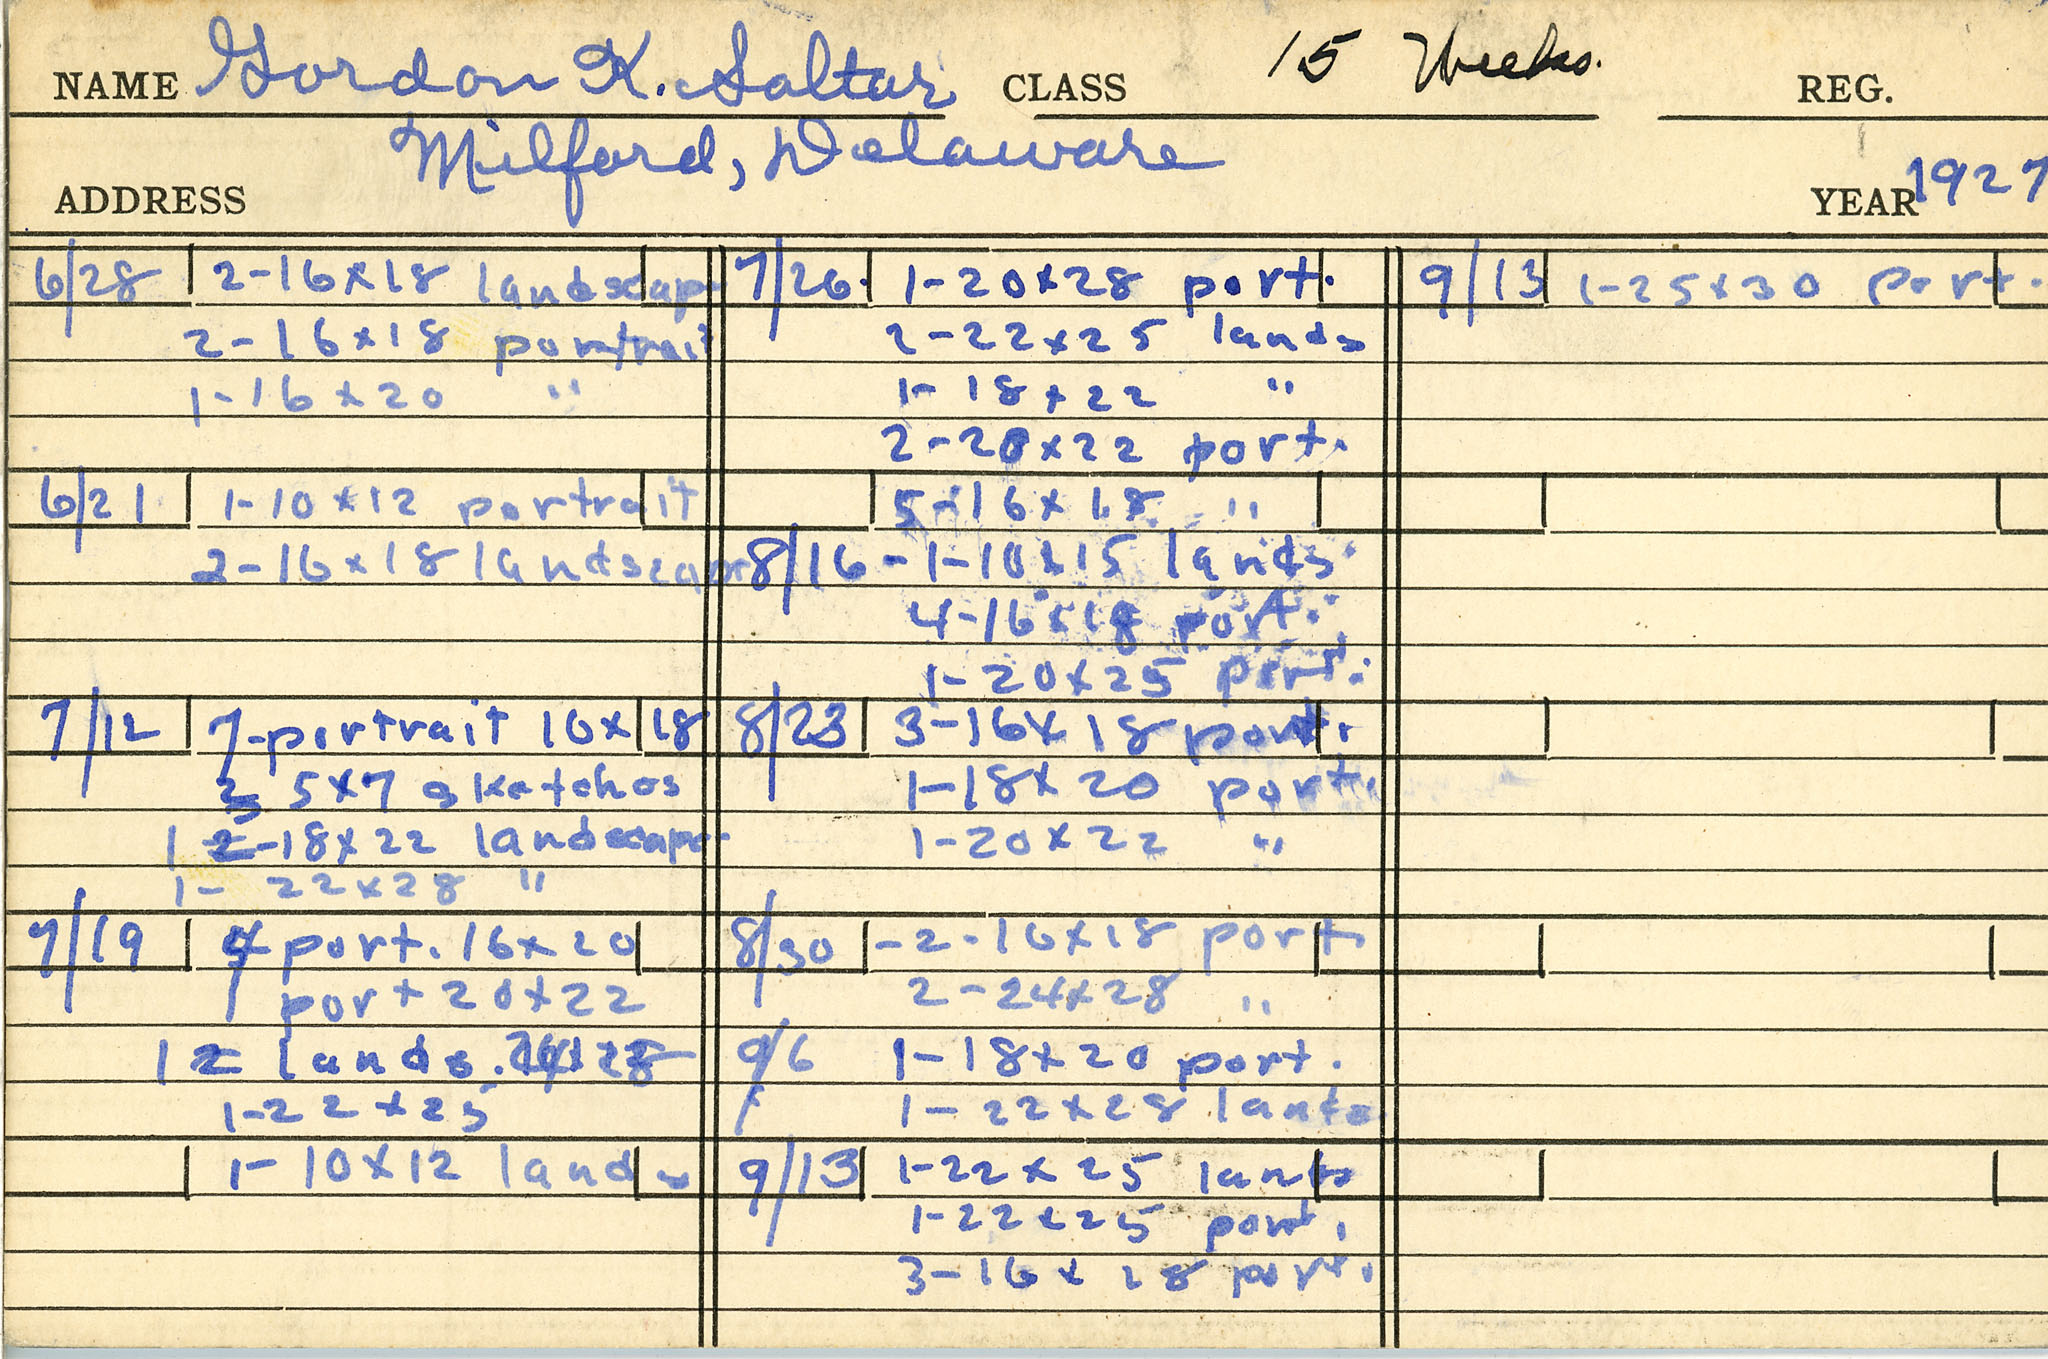 NAME Gordon K. Saltar CLASS 15 Weeks. REG.
Milford, Delaware
ADDRESS YEAR 1927
6/28 2-16x18 landscap
2-16x18 portrait
1-16x20 "
6/21 1-10x12 portrait
2-16x18 landscape
7/12 7-portrait 16x18
5x7 sketches
1 2-18x22 landscape
1- 22x28 "
7/19 port. 16x20
1 port 20x22
1 2 lands.
1-22x25
1-10x12 lands
7/26. 1-20x28 port.
2-22x25 lands
1-18x22 "
2-20x22 port.
5-16x18 "
8/16 - 1-10x15 lands
4-16x18 port.
1-20x25 port.
8/23 3-16x18 port.
1-18x20 port.
1-20x22 "
8/30 -2-16x18 port.
2-24x28 "
9/6 1-18x20 port.
1-22x28 lands
9/13 1-22x25 lands
1-22x25 port.
3-16x18 port.
9/13 1-25x30 port.